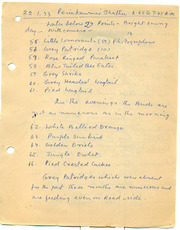 22.1.93
Water below 99 Points - Bright Sunny
day. with camera -
55 Little Cormorant
56 Grey Partridge
57 Rose Ringed Parakeet
58 Blue Tailed Bee Eater
59 Grey Shrike
60 Grey Headed Wagtail
61 Pied Wagtail
In the evenings the Birds are
not as numerous as in the morning
62 White Bellied Drongo
63 Purple Sunbird
64 Golden Oriole
65 Jungle Owlet
66 Pied Crested Cuckoo
Grey Partridges which were absent
for the past three months are numerous and
are feeding even on Road side.